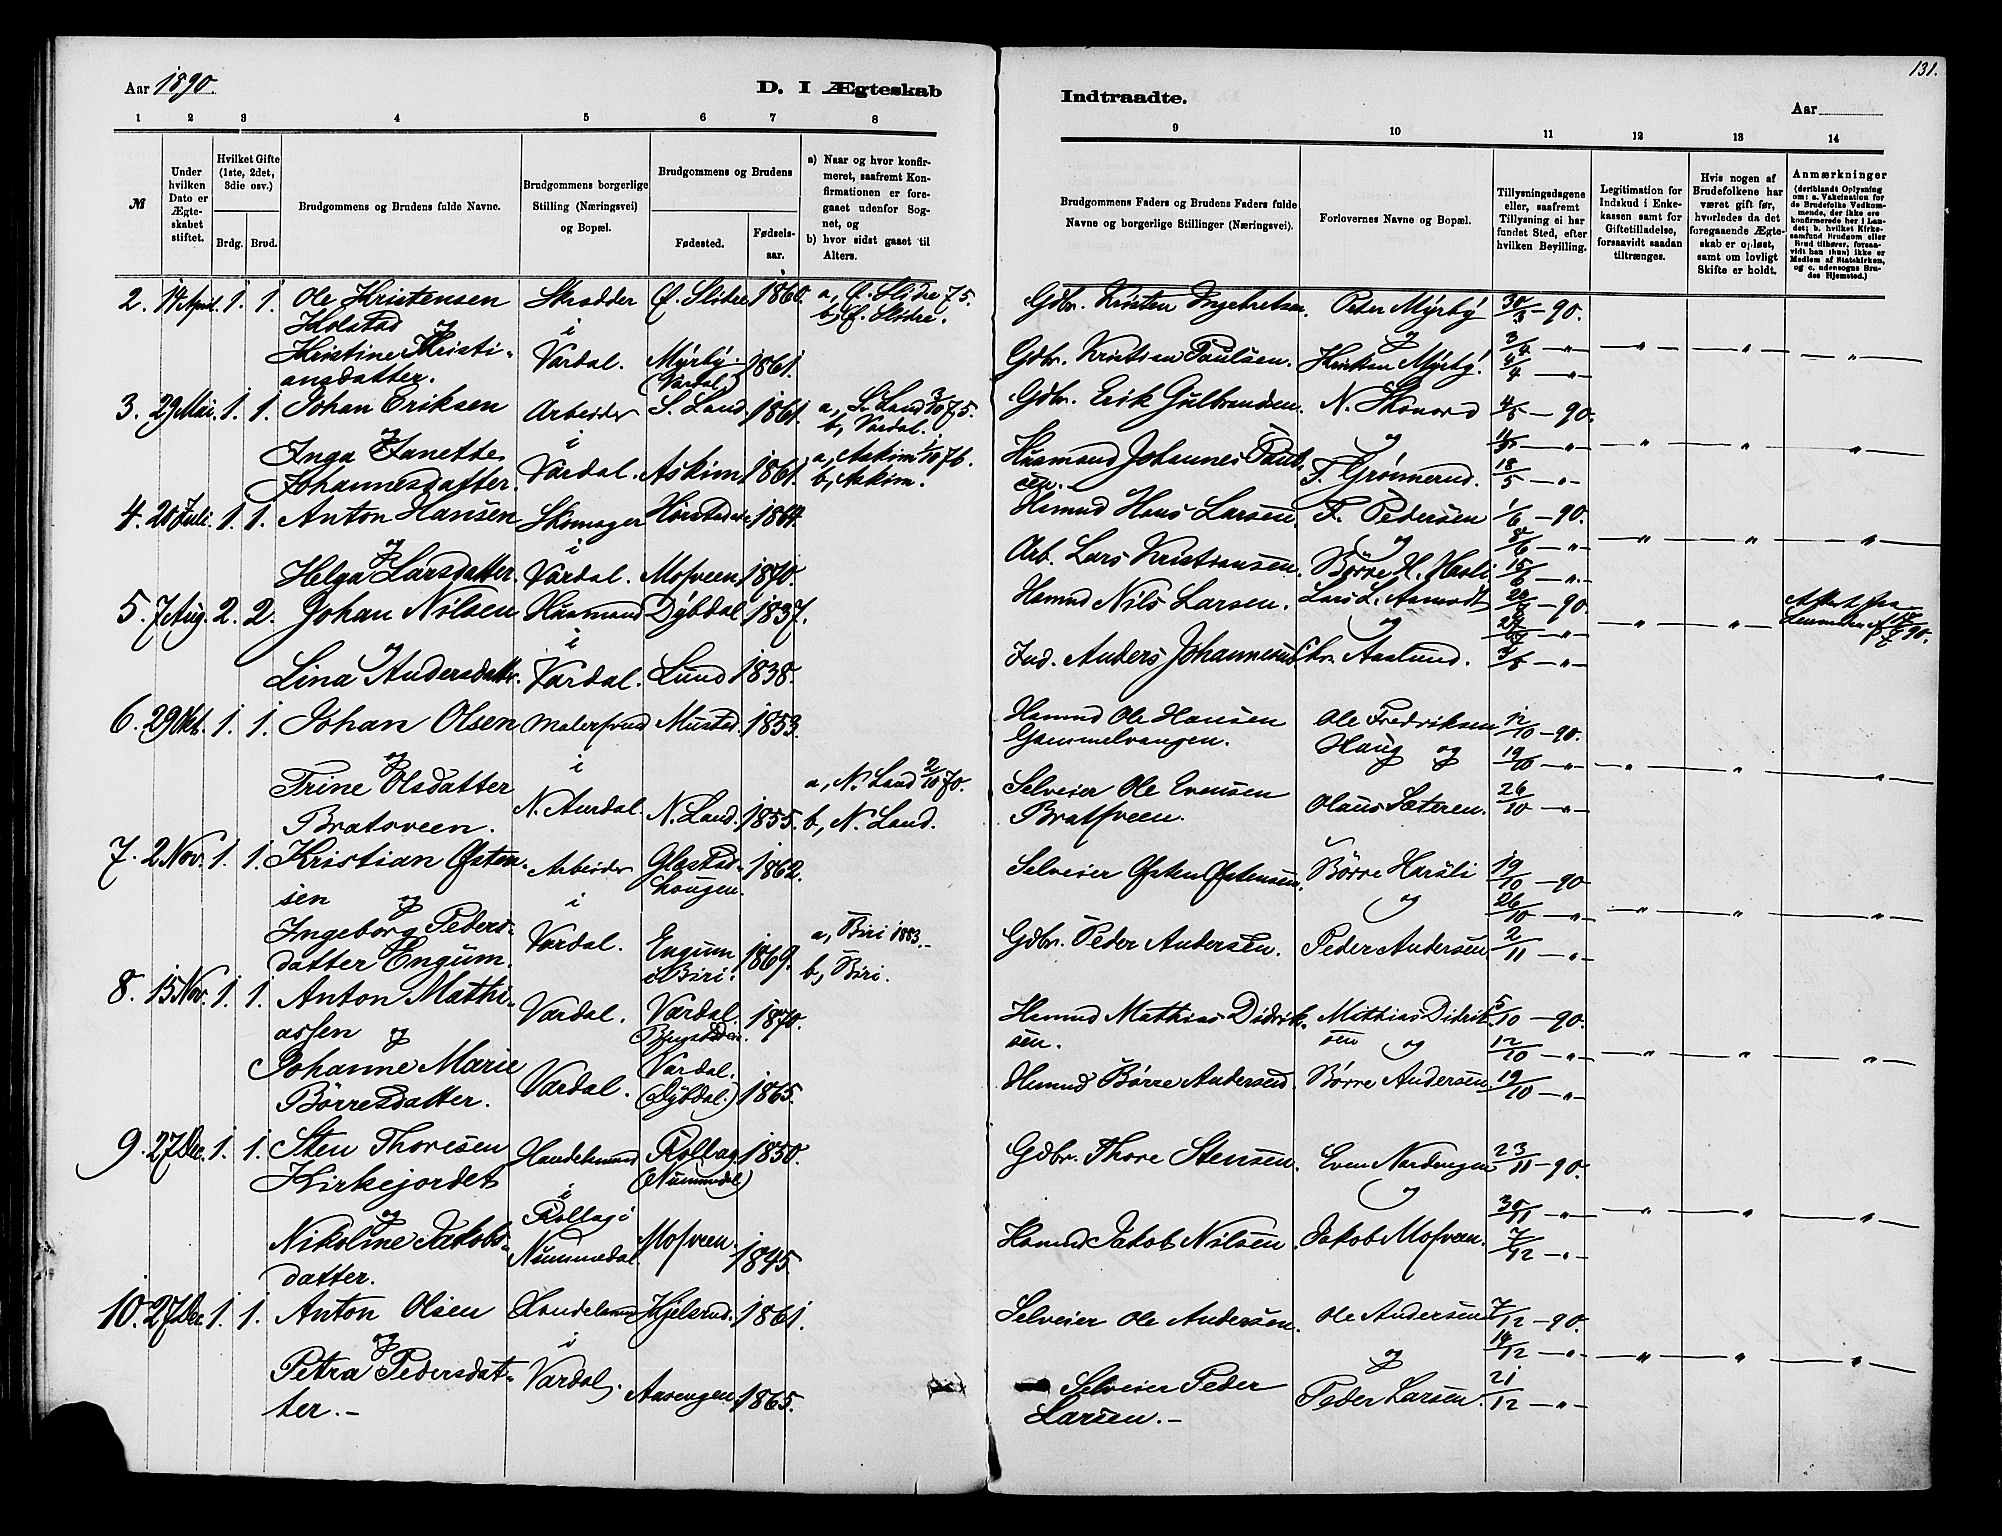 131.
Aar 1890.
D. I Ægteskab
Indtraadte.
Aar
1 2 3 4 5 6 7 8
9 10 11 12 13 14
№
Under hvilken Dato er Ægteskabet stiftet.
Hvilket Gifte (1ste, 2det, 3die osv.)
Brdg. Brud.
Brudgommens og Brudens fulde Navne.
Brudgommens borgerlige Stilling (Næringsvei) og Bopæl.
Brudgommens og Brudens
Fødested.
Fødselsaar.
a) Naar og hvor konfirmeret, saafremt Konfirmationen er foregaaet udenfor Sognet, og
b) hvor sidst gaaet til Alters.
Brudgommens Faders og Brudens Faders fulde Navne og borgerlige Stillinger (Næringsvei).
Forlovernes Navne og Bopæl.
Tillysningsdagene eller, saafremt Tillysning ei har fundet Sted, efter hvilken Bevilling.
Legitimation for Indskud i Enkekassen samt for Giftetilladelse, forsaavidt saadan tiltrænges.
Hvis nogen af Brudefolkene har været gift før, hvorledes da det foregaaende Ægteskab er opløst, samt om lovligt Skifte er holdt.
Anmærkninger
(deriblandt Oplysning om: a. Vakcination for de Brudefolks Vedkommende, der ikke ere konfirmerede her i Landet; b. hvilket Kirkesamfund Brudgom eller Brud tilhører, forsaavidt han (hun) ikke er Medlem af Statskirken, og c. udensogns Brudes Hjemsted.)
2. 14 April. 1. 1. Ole Kristensen Skrædder Ø. Slidre 1860. a, Ø. Slidre 75.
Holstad og i b, Ø. Slidre.
Kristine Kristi- Vardal. Myrby 1861.
ansdatter. (Vardal)
Gdbr. Kristen Ingebretsen. Peter Myrby 30/3 - 90.
og 3/4 - " -
Gdbr. Kristian Paulsen. Kristian Myrby. 4/4 - " -
3. 29 Mai. 1. 1. Johan Eriksen Arbeider S. Land. 1861. a, S. Land 3/10 75.
og i b, Vardal.
Inga Janette Vardal. Askim 1861. a, Askim 1/10 76.
Johannesdatter. b, Askim.
Gdbr. Erik Gulbrandsen. N. Skonord 4/5 - 90.
og 11/5 - " -
Husmand Johannes Paul- F. Grønnerud. 18/5 - " -
sen.
4. 20 Juli. 1. 1. Anton Hansen Skomager 1864.
og i
Helga Larsdatter. Vardal. Mosveen 1870.
Hsmnd Hans Larsen. F. Pedersen 1/6 - 90.
og 8/6 - " -
Arb. Lars Kristiansen. Børre H. 15/6 - " -
5. 7 Aug. 2. 2. Johan Nilsen Husmand Dybdal 1837.
og i
Lina Andersdatter. Vardal. Lund 1838.
Hsmnd Nils Larsen. Lars L. Aamodt - 90.
og - " -
Ind. Anders Johannesen Chr. Aaslund. - " -
Attest fra
90.
6. 29 Okt. 1. 1. Johan Olsen Malersvend Mustad. 1853.
og i
Trine Olsdatter N. Aurdal. N. Land. 1855. a, N. Land 2/10 70.
Bratsveen. b, N. Land.
Hsmnd Ole Hansen Ole Fredriksen 12/10 - 90.
Gammelvangen. Haug og 19/10 - " -
Selveier Ole Evensen 26/10 - " -
Bratsveen. Olaus Sæteren.
7. 2 Nov. 1. 1. Kristian Østen- Arbeider Glæstad- 1862.
sen og i haugen.
Ingeborg Peders- Vardal. Engum 1869. a, Biri 1883.
datter Engum. i Biri. b, Biri.
Selveier Østen Østensen. Børre Harsli 19/10 - 90
og 26/10 - " -
Gdbr. Peder Andersen. Peder Andersen 2/11 - " -
8. 15 Nov. 1. 1. Anton Mathi- Vardal. Vardal 1870.
assen og
Johanne Marie Vardal. Vardal. 1865.
Børresdatter. (Dybdal.)
Hsmnd Mathias Didrik- Mathias Didrik- 5/10 - 90.
sen. sen og 12/10 - " -
Hsmnd Børre Andersen. Børre Andersen 19/10 - " -
9. 27 Dec. 1. 1. Sten Thoresen Handelsmand Rollag 1850.
Kirkejordet i (Nummedal)
og Rollag i
Nikoline Jakobs- Nummedal. Mosveen 1845.
datter.
Gdbr. Thore Stensen. Even Nordengen 23/11 - 90.
og 30/11 - " -
Hsmnd Jakob Nilsen. Jakob Mosveen. 7/12 - " -
10. 27 Dec. 1. 1. Anton Olsen Handelsmand Hjelsrud. 1861.
og i
Petra Pedersdat- Vardal. Aasengen. 1865.
ter. -
Selveier Ole Andersen. Ole Andersen 7/12 - 90.
og 14/12 - " -
Selveier Peder Peder Larsen. 21/12 - " -
Larsen. -